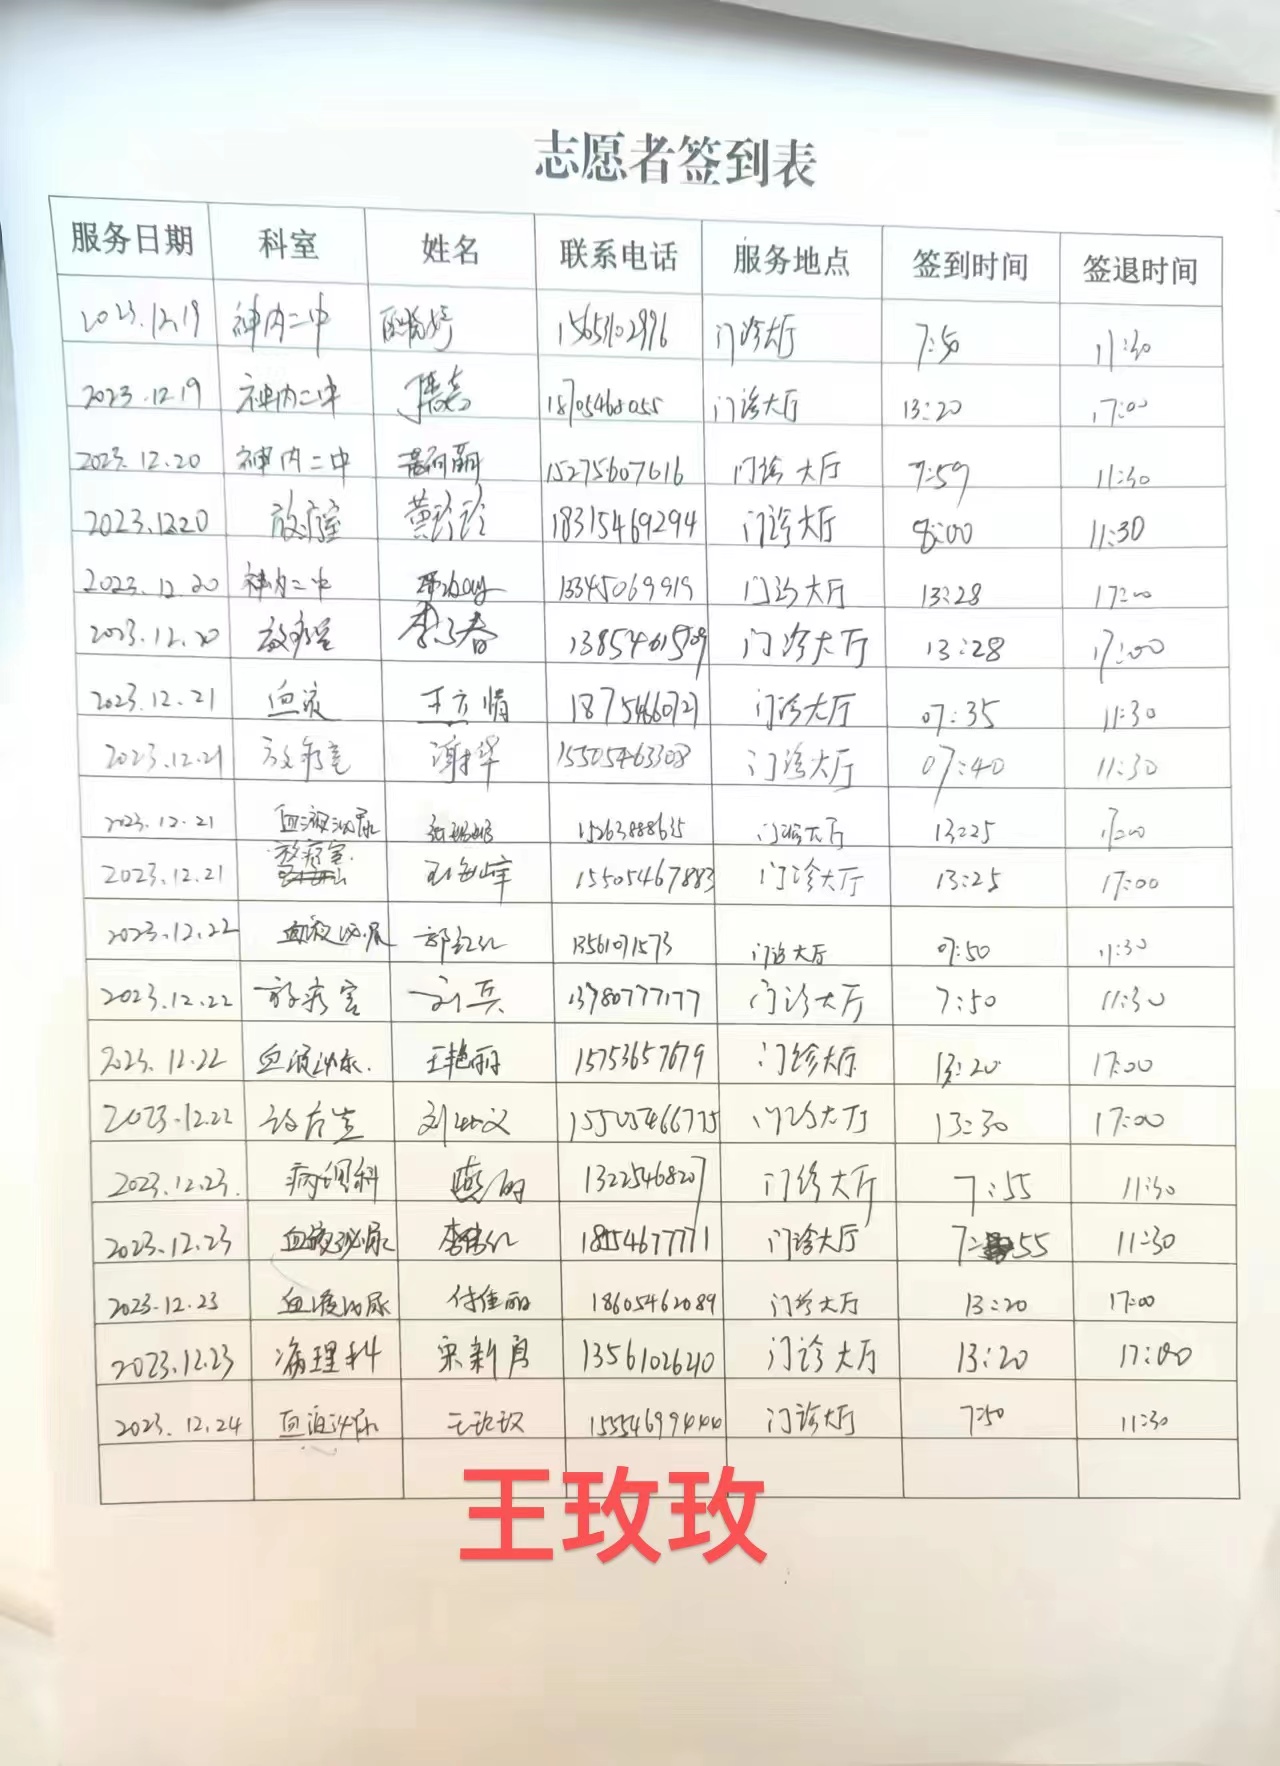 志愿者签到表
服务日期 科室 姓名 联系电话 服务地点 签到时间 签退时间
2023.12.19 神内二中 门诊大厅 7:50 11:30
2023.12.19 神内二中 18705468055 门诊大厅 13:20 17:00
2023.12.20 神内二中 15275607616 门诊大厅 7:59 11:30
2023.12.20 放疗室 黄珍珍 18315469294 门诊大厅 8:00 11:30
2023.12.20 神内二中 13345069919 门诊大厅 13:28 17:00
2023.12.20 放疗室 13854615709 门诊大厅 13:28 17:00
2023.12.21 血液 王方情 门诊大厅 07:35 11:30
2023.12.21 放疗室 谢华 15505463308 门诊大厅 07:40 11:30
2023.12.21 血液泌尿 15263888635 门诊大厅 13:25 17:00
2023.12.21 放疗室 王海峰 15505467883 门诊大厅 13:25 17:00
2023.12.22 血液泌尿 郭红红 13561071573 门诊大厅 07:50 11:30
2023.12.22 放疗室 刘兵 13780777177 门诊大厅 7:50 11:30
2023.12.22 血液泌尿 王艳丽 15753657679 门诊大厅 13:20 17:00
2023.12.22 15505466775 门诊大厅 13:30 17:00
2023.12.23 病理科 燕丽 13225468207 门诊大厅 7:55 11:30
2023.12.23 血液泌尿 18554677771 门诊大厅 7:55 11:30
2023.12.23 血液泌尿 付佳丽 18605462089 门诊大厅 13:20 17:00
2023.12.23 病理科 宋新房 13561026210 门诊大厅 13:20 17:00
2023.12.24 血液泌尿 王玫玫 15554699444 门诊大厅 7:50 11:30
王玫玫